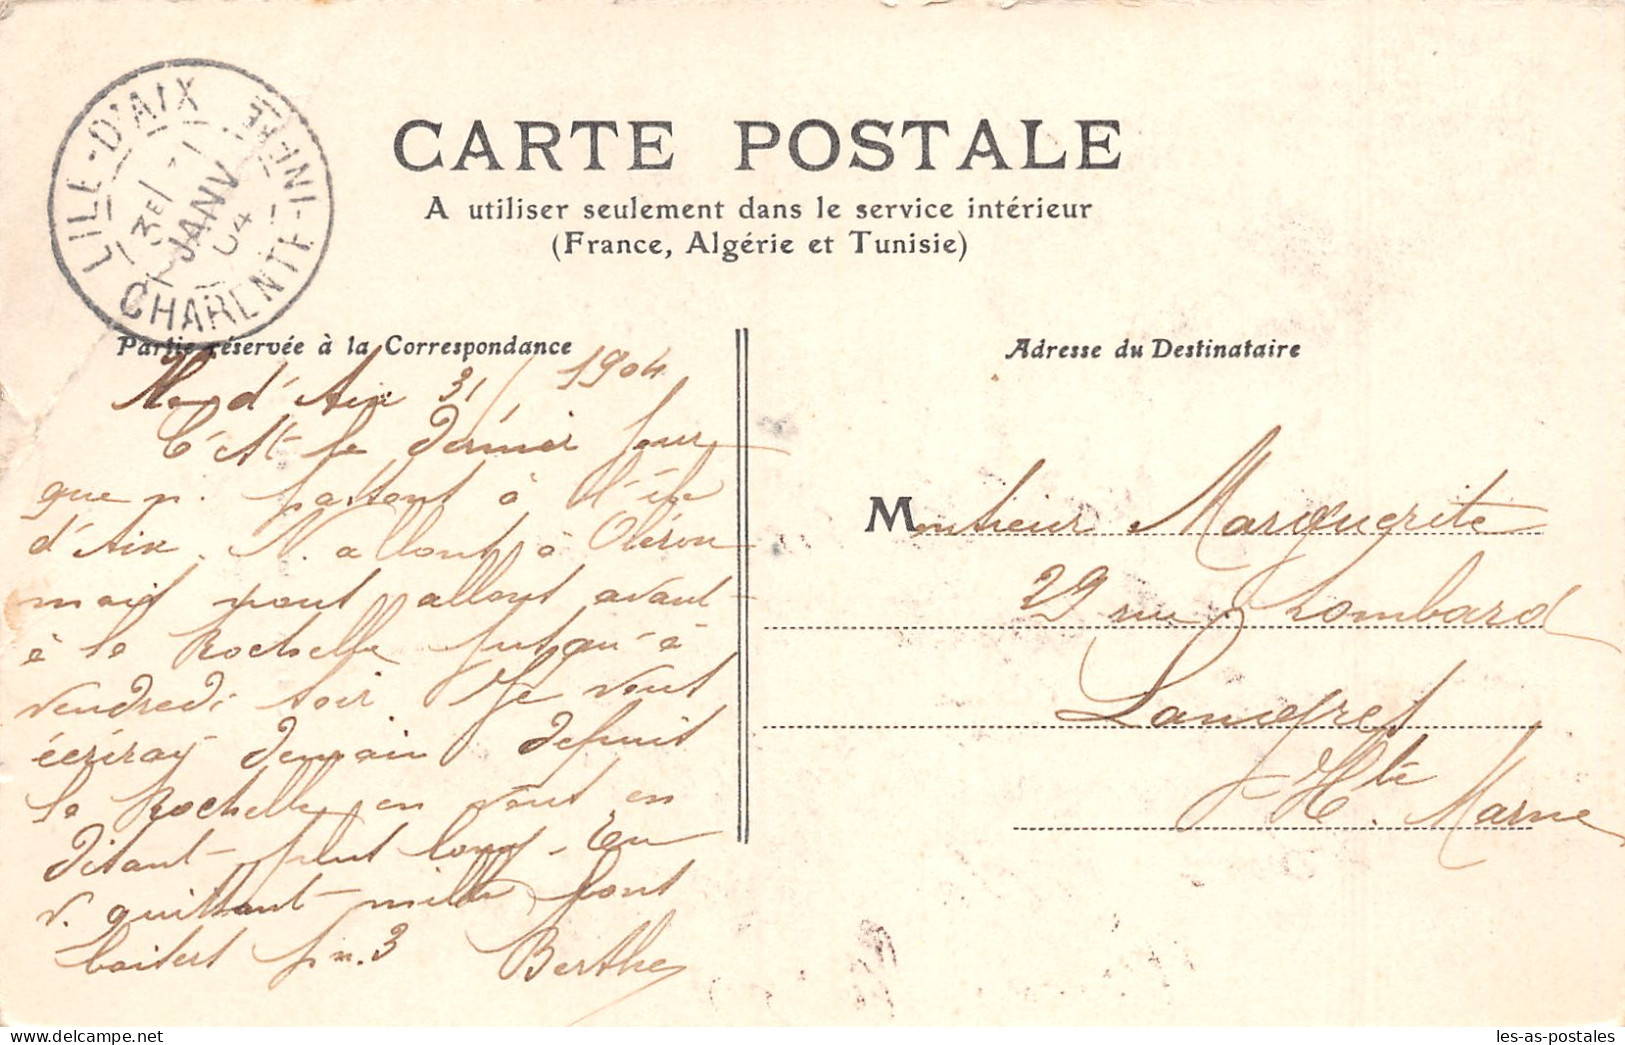 L'ILE-D'AIX
CHARENTE-INFRE
3E / 31
JANV
04
CARTE POSTALE
A utiliser seulement dans le service intérieur
(France, Algérie et Tunisie)
Partie réservée à la Correspondance
d'Aix 31/ 1904
C'est le dernier jour
que n. passons à l'île
d'Aix. N. allons à Oléron
mais nous allons avant
à la Rochelle jusqu'à
vendredi soir Je vous
écriray demain depuis
la Rochelle en vous en
disant plus long. En
v. quittant mille bons
baisers p. n. 3 Berthe
Adresse du Destinataire
Monsieur Marguerite
29 rue Lombard
Langres
Hte Marne
delcampe.net
les-as-postales